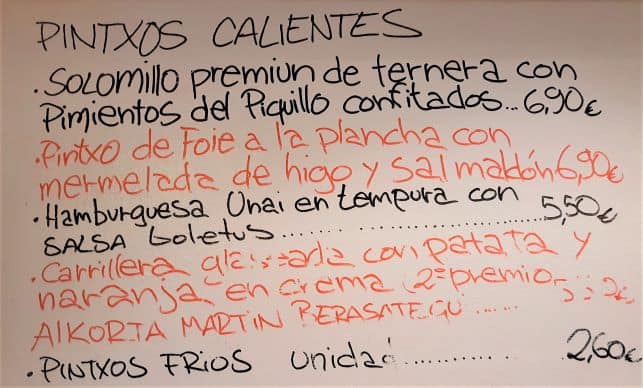 PINTXOS CALIENTES
. SOLOMILLO premiun de ternera con
Pimientos del Piquillo confitados... 6,90€
.Pintxo de Foie a la plancha con
mermelada de higo y sal maldón 6,90€
. Hamburguesa Unai en tempura con
SALSA boletus................. 5,50€
. Carrillera glaseada con patata y
naranja en crema 2º premio
AIKORTA MARTIN BERASATEGU ......
. PINTXOS FRIOS unidad ............ 2,60€